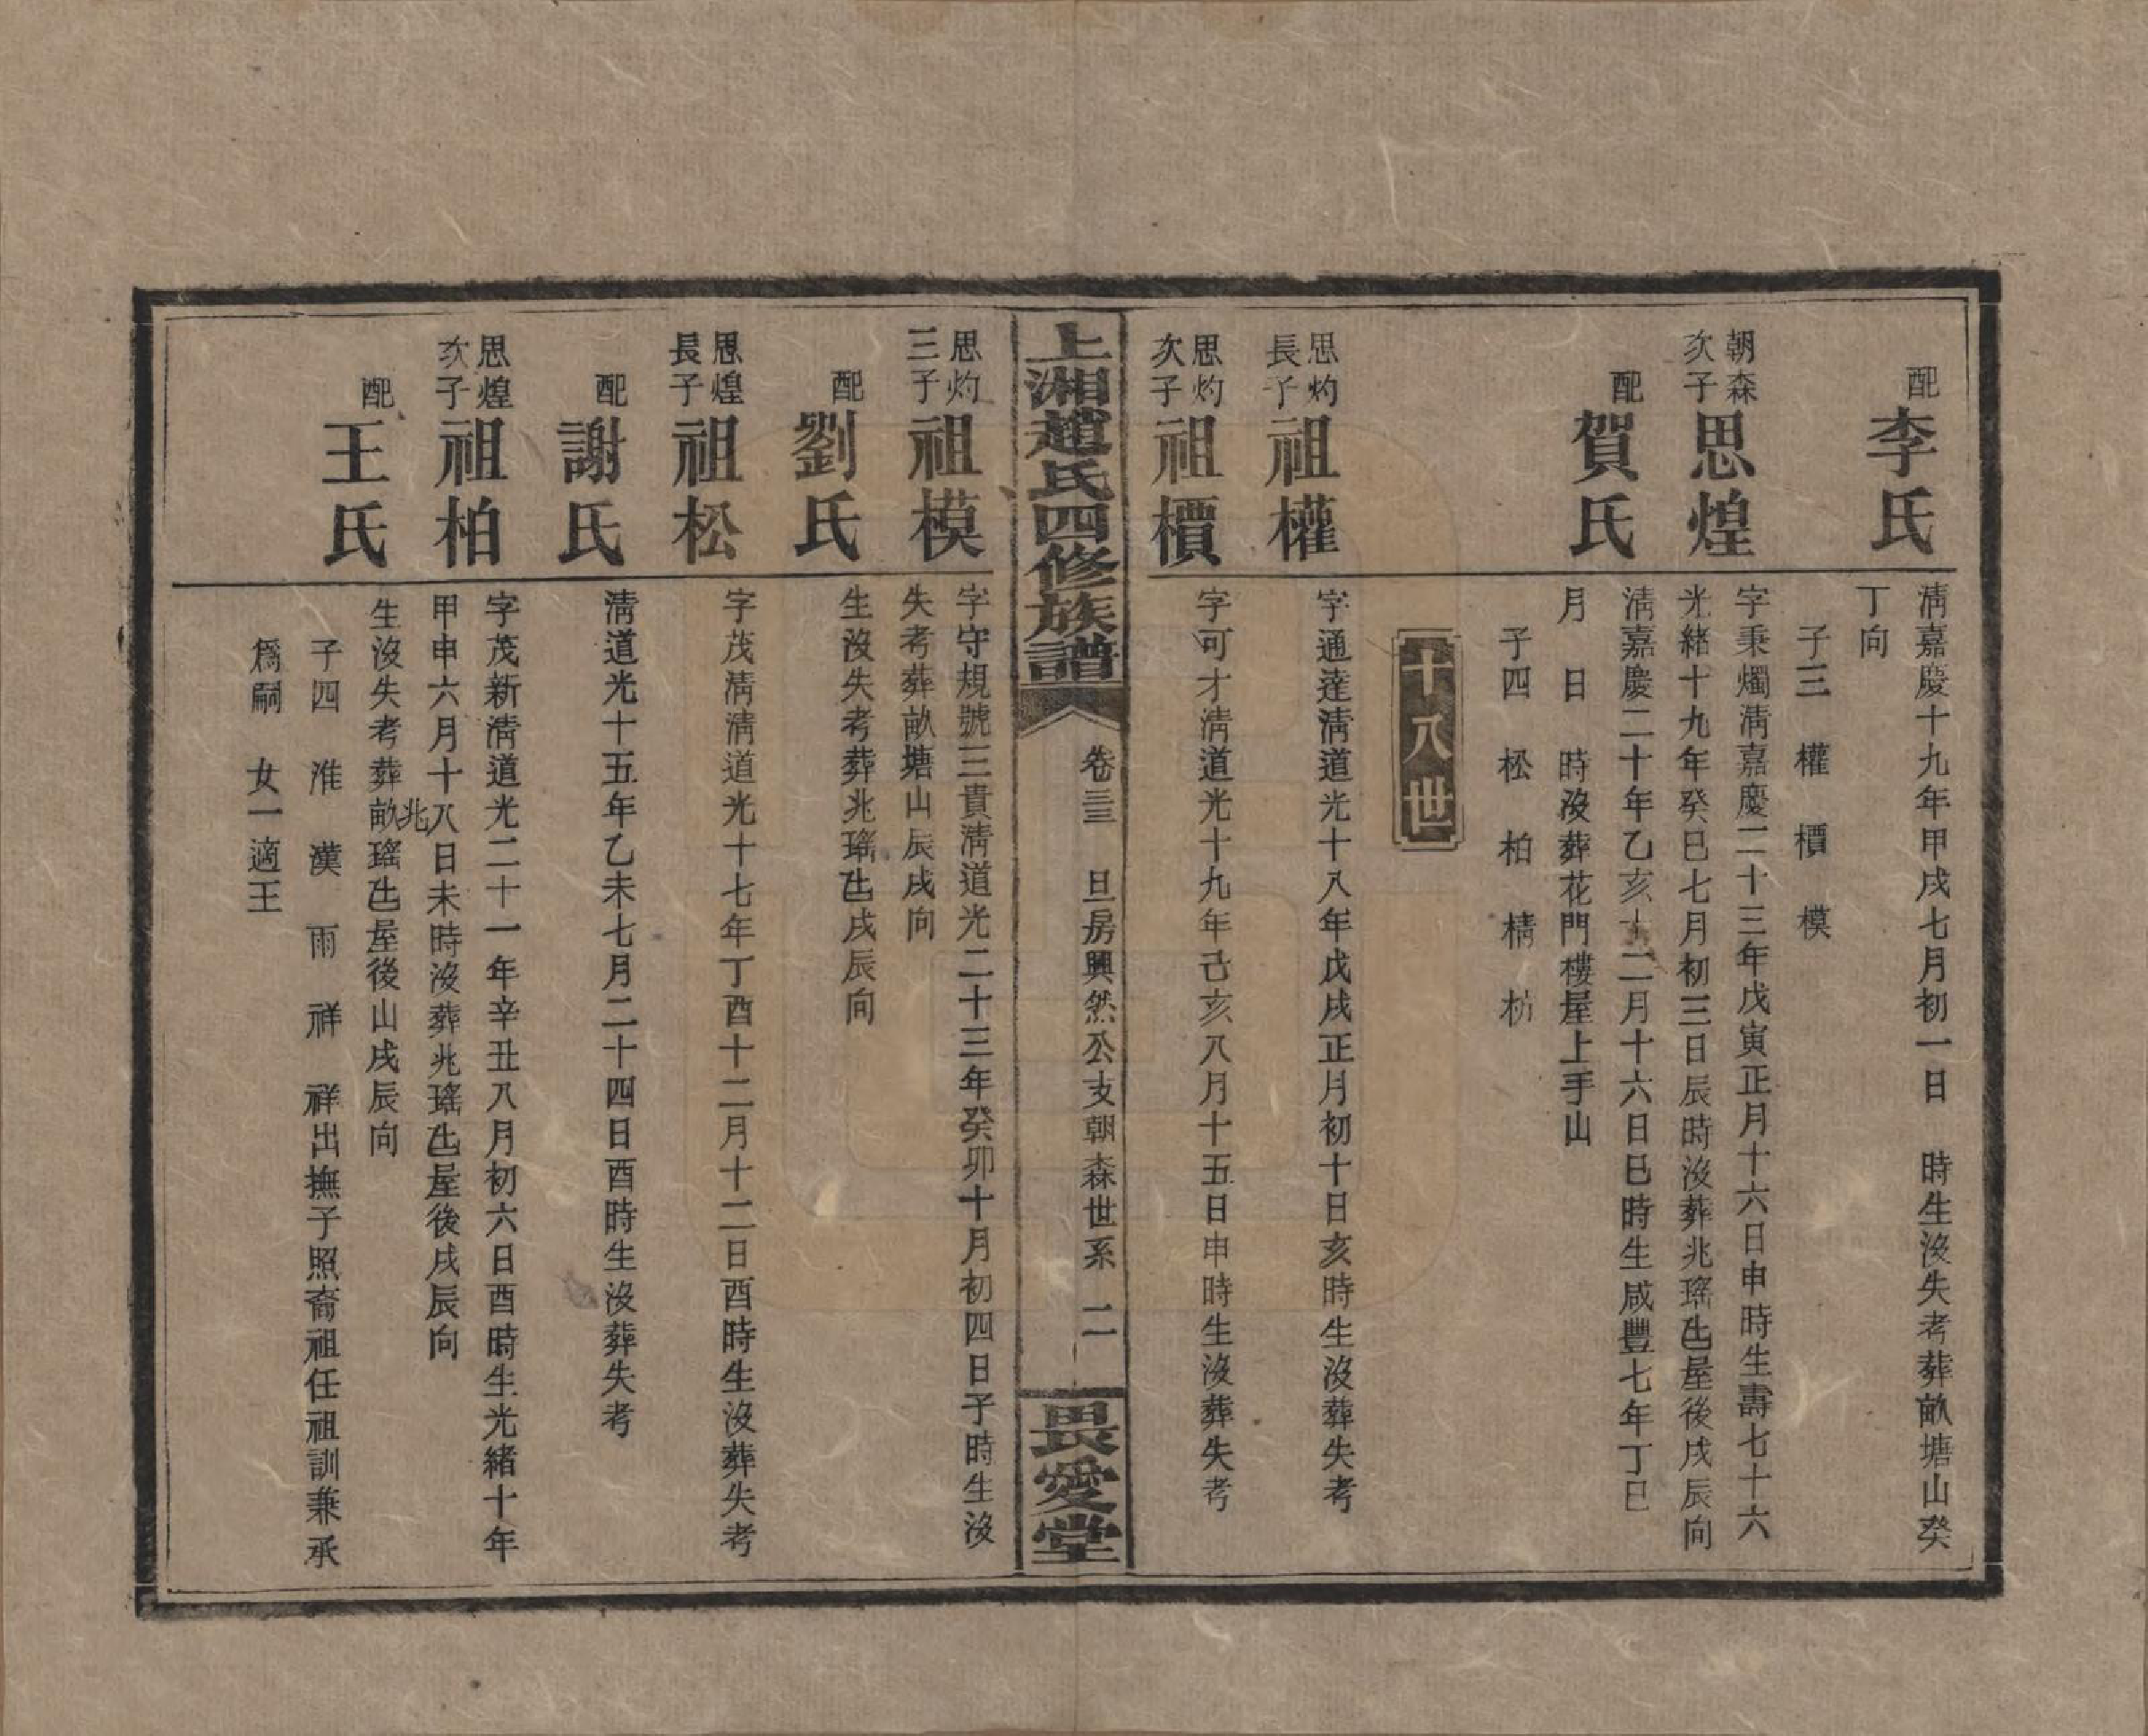 配
李氏
淸嘉慶十九年甲戌七月初一日 時生沒失考葬畝塘山癸
丁向
子三 權 檟 模
朝森
次子
思煌
字秉燭淸嘉慶二十三年戊寅正月十六日申時生壽七十六
光緒十九年癸巳七月初三日辰時沒葬兆瑤屋後戌辰向
配
賀氏
淸嘉慶二十年乙亥十二月十六日巳時生咸豐七年丁巳
月 日 時沒葬花門樓屋上手山
子四 松 柏 樠
十八世
思灼
長子
祖權
字通達淸道光十八年戊戌正月初十日亥時生沒葬失考
思灼
次子
祖檟
字可才淸道光十九年己亥八月十五日申時生沒葬失考
上湘趙氏四修族譜
卷三三 旦房興然公支朝森世系 二
畏愛堂
思灼
三子
祖模
字守規號三貴淸道光二十三年癸卯十月初四日子時生沒
失考葬畝塘山辰戌向
配
劉氏
生沒失考葬兆瑤戌辰向
思煌
長子
祖松
字茂淸淸道光十七年丁酉十二月十二日酉時生沒葬失考
配
謝氏
淸道光十五年乙未七月二十四日酉時生沒葬失考
思煌
次子
祖柏
字茂新淸道光二十一年辛丑八月初六日酉時生光緒十年
甲申六月十八日未時沒葬兆瑤屋後戌辰向
配
王氏
生沒失考葬畝兆瑤屋後山戌辰向
子四 淮 漢 雨 祥 祥出撫子照裔祖任祖訓兼承
爲嗣 女一適王